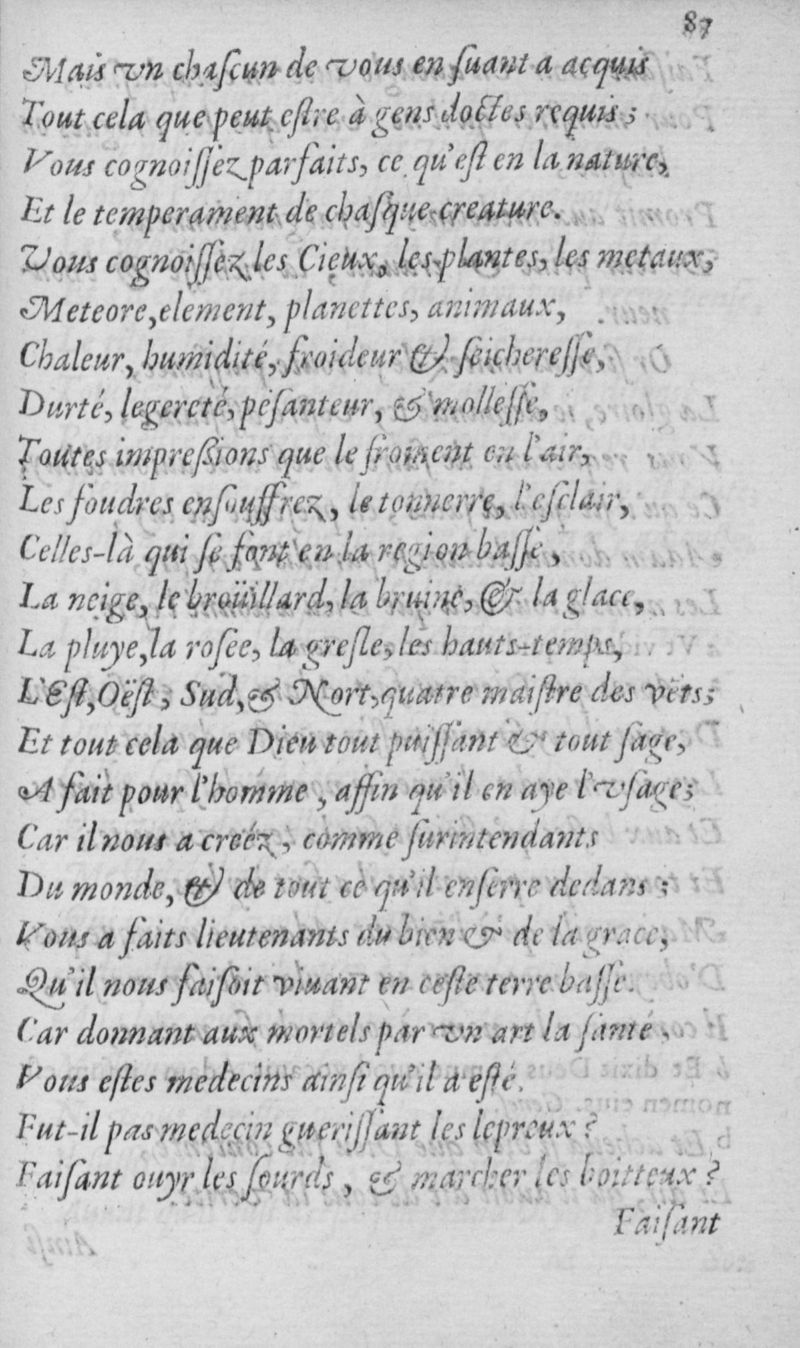 87
Mais vn chaſcun de vous en ſuant a acquis
Tout cela que peut eſtre à gens doctes requis ;
Vous cognoiſſez parfaits, ce qu'eſt en la nature,
Et le temperament de chaſque creature.
Vous cognoiſſez les Cieux, les plantes, les metaux,
Meteore, element, planettes, animaux,
Chaleur, humidité, froideur & ſeichereſſe,
Durté, legereté, peſanteur, & molleſſe,
Toutes impreſſions que ſe froment en l'air,
Les foudres enſouffrez, le tonnerre, l'eſclair,
Celles-là qui ſe font en la region baſſe,
La neige, le broüillard, la bruine, & la glace,
La pluye, la roſée, la greſle, les hauts-temps,
L'Eſt, Oëſt, Sud, & Nort, quatre maiſtre des vēts;
Et tout cela que Dieu tout puiſſant & tout ſage,
A fait pour l'homme, affin qu'il en aye l'vſage;
Car il nous a creéz, comme ſurintendants
Du monde, & de tout ce qu'il enſerre dedans ;
Vous a faits lieutenants du bien & de la grace,
Qu'il nous faiſoit viuant en ceſte terre baſſe.
Car donnant aux mortels par vn art la ſanté,
Vous eſtes medecins ainſi qu'il a eſté.
Fut-il pas medecin gueriſſant les lepreux ?
Faiſant ouyr les ſourds, & marcher les boitteux ?
Faiſant